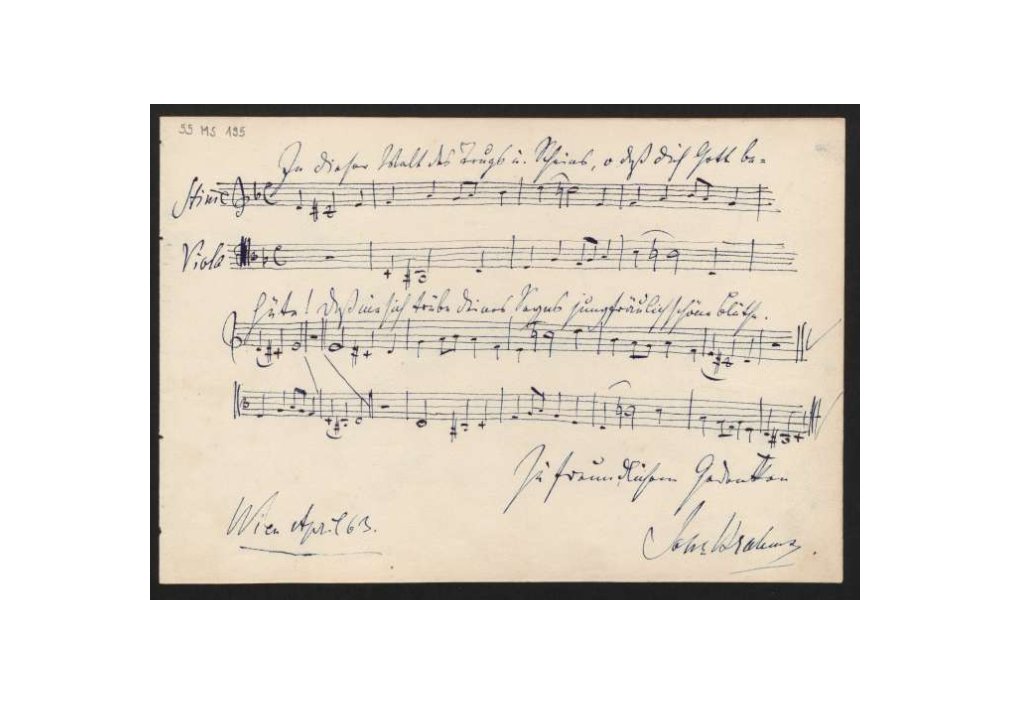 55 MS 195
In dieser Welt des Trugs u. Scheins, o daß dich Gott be-
Stimme
Viola
hüte! Daß nie sich trübe deines Segns jungfräulich schöne Blüthe.
Zu freundlichem Gedenken
Wien April 63.
Johs Brahms.